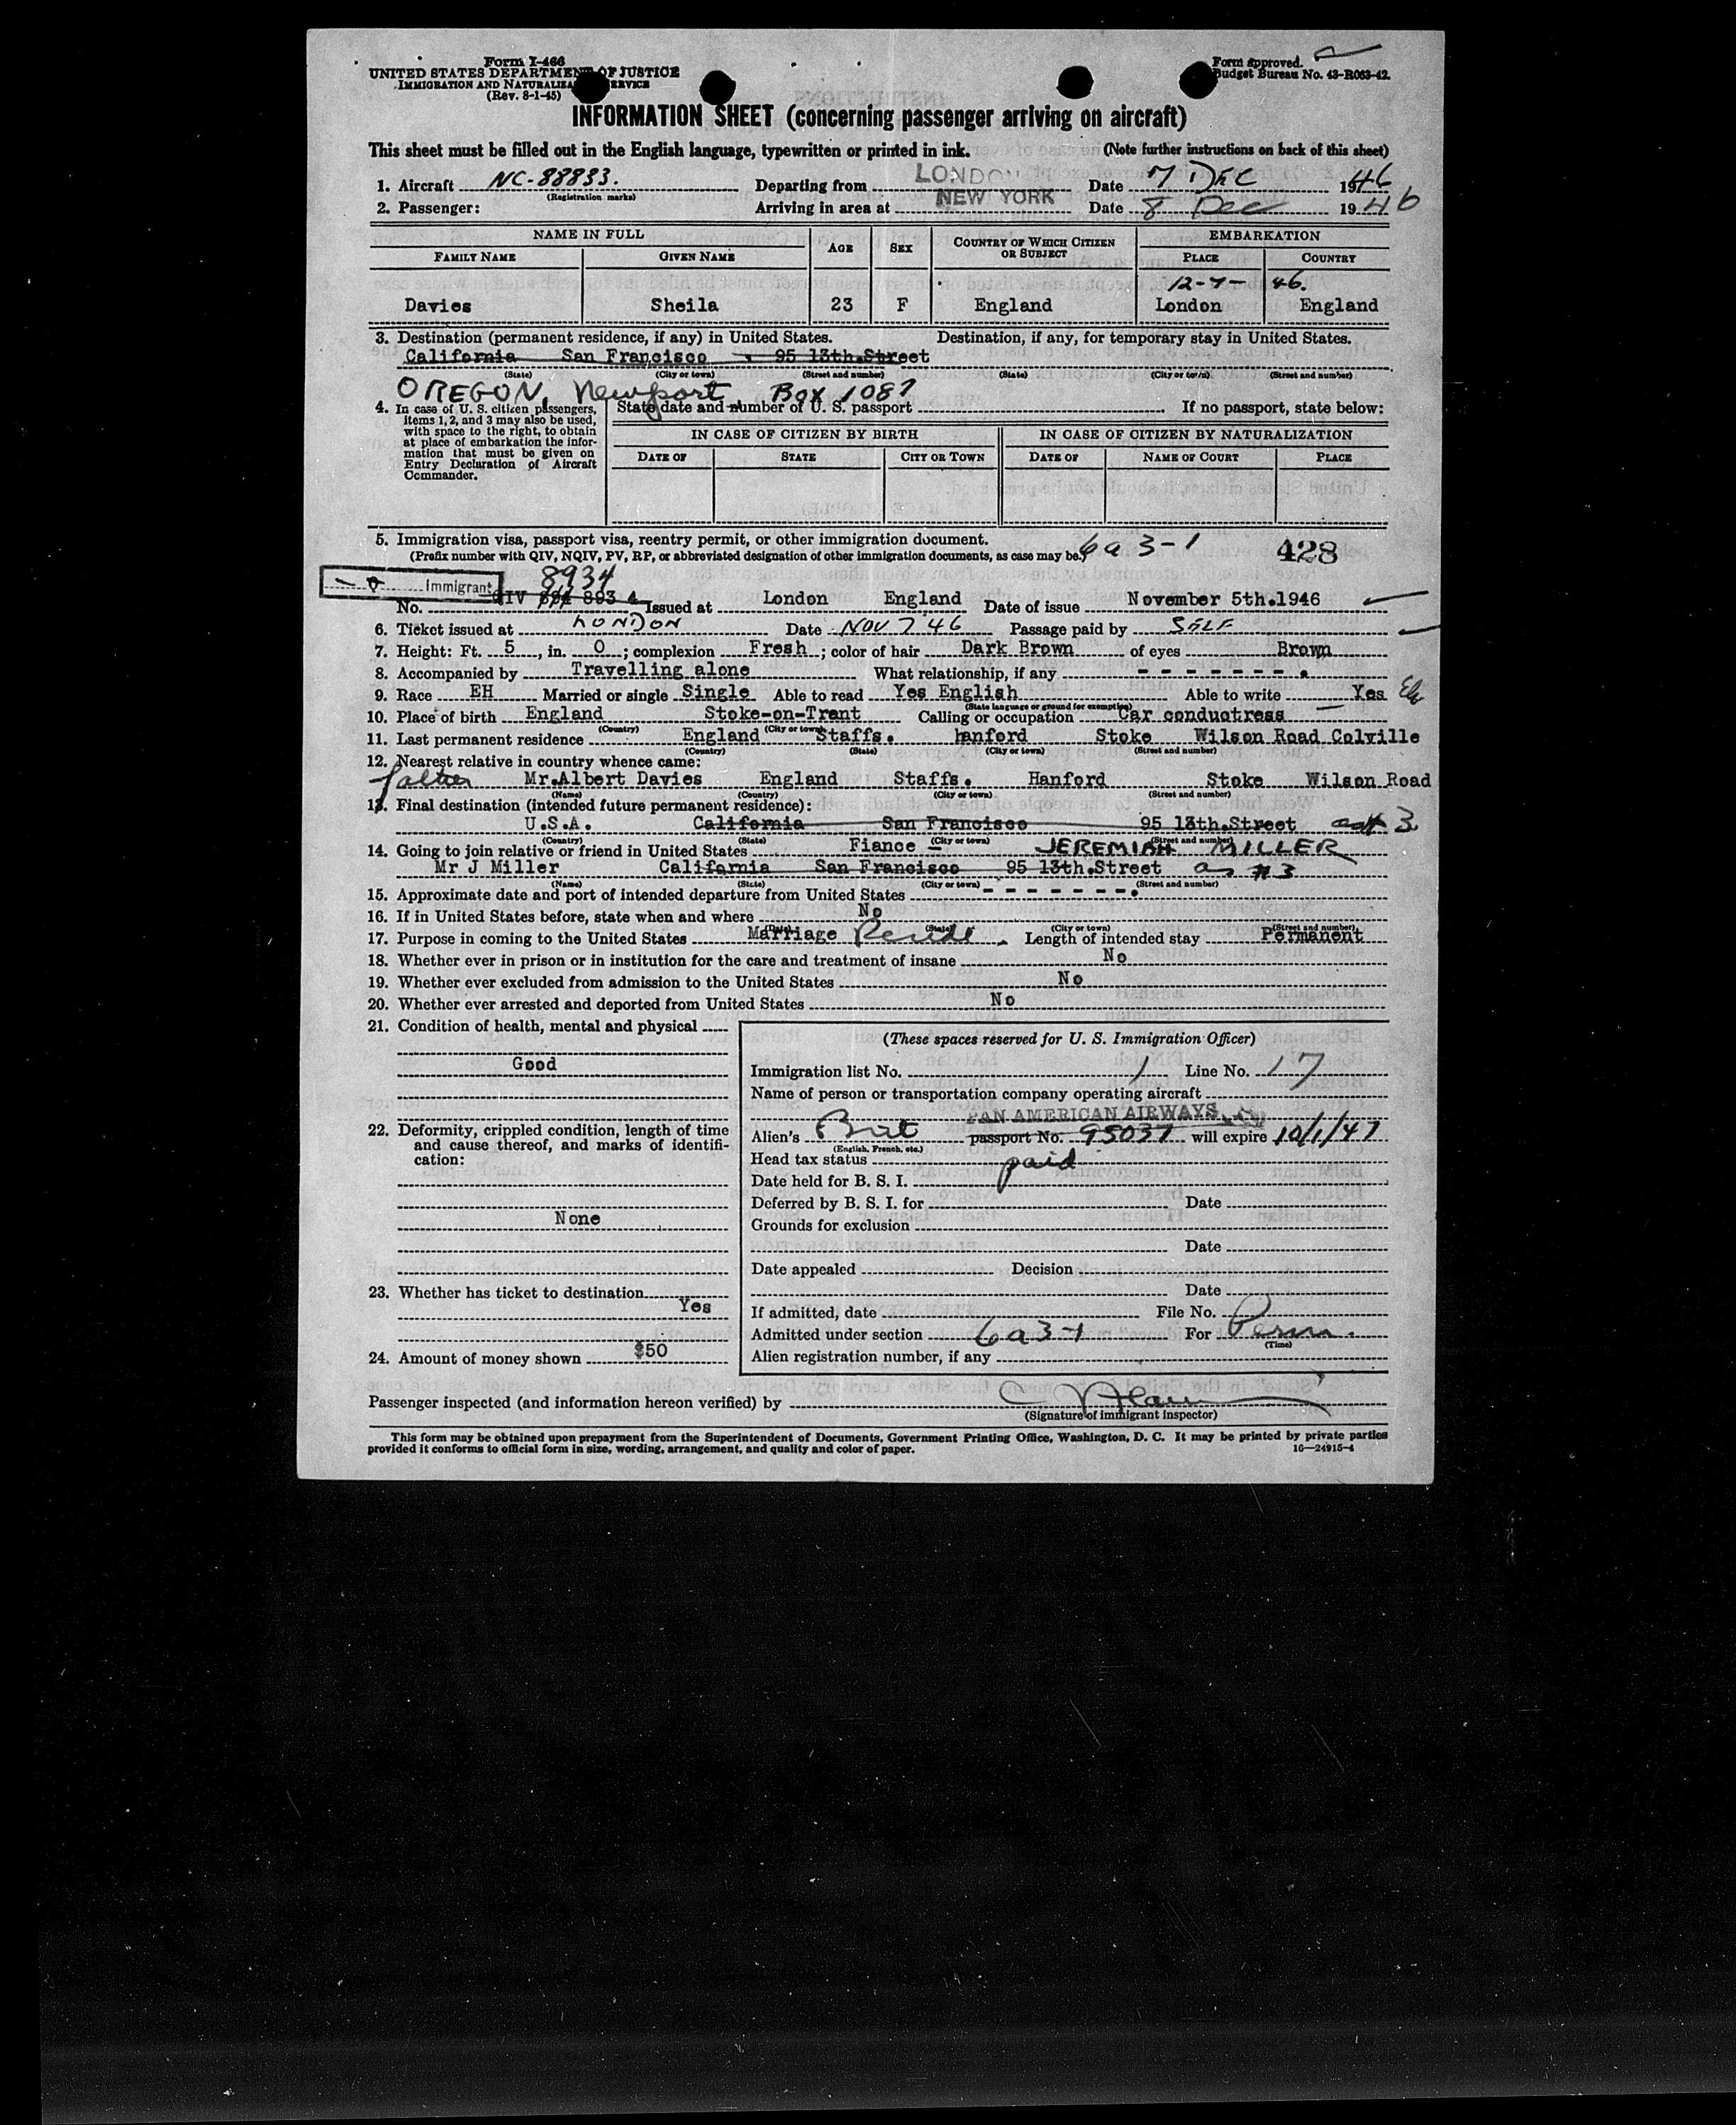 Form I-466
UNITED STATES DEPARTMENT OF JUSTICE
IMMIGRATION AND NATURALIZA SERVICE
(Rev. 8-1-45)
Form approved.
Budget Bureau No. 43-R063-42.
INFORMATION SHEET (concerning passenger arriving on aircraft)
This sheet must be filled out in the English language, typewritten or printed in ink. (Note further instructions on back of this sheet)
1. Aircraft NC-88833. Departing from LONDON Date 7 DEC 1946
(Registration marks)
2. Passenger: Arriving in area at NEW YORK Date 8 Dec 1946
NAME IN FULL AGE SEX COUNTRY OF WHICH CITIZEN OR SUBJECT EMBARKATION
FAMILY NAME GIVEN NAME PLACE COUNTRY
12-7-46.
Davies Sheila 23 F England London England
3. Destination (permanent residence, if any) in United States. Destination, if any, for temporary stay in United States.
California San Francisco 95 13th.Street
(State) (City or town) (Street and number) (State) (City or town) (Street and number)
OREGON, Newport Box 1087
4. In case of U. S. citizen passengers, items 1, 2, and 3 may also be used, with space to the right, to obtain at place of embarkation the information that must be given on Entry Declaration of Aircraft Commander.
State date and number of U. S. passport If no passport, state below:
IN CASE OF CITIZEN BY BIRTH IN CASE OF CITIZEN BY NATURALIZATION
DATE OF STATE CITY OR TOWN DATE OF NAME OF COURT PLACE
5. Immigration visa, passport visa, reentry permit, or other immigration document.
(Prefix number with QIV, NQIV, PV, RP, or abbreviated designation of other immigration documents, as case may be.) 6a3-1 428
Immigrant 8934
No. QIV 893 4 Issued at London England Date of issue November 5th.1946
6. Ticket issued at LONDON Date NOV 7 '46 Passage paid by SELF
7. Height: Ft. 5, in. 0; complexion Fresh; color of hair Dark Brown of eyes Brown
8. Accompanied by Travelling alone What relationship, if any - - - - - - - .
9. Race EH Married or single Single Able to read Yes English Able to write Yes
(State language or ground for exemption)
10. Place of birth England Stoke-on-Trent Calling or occupation Car conductress
(Country) (City or town)
11. Last permanent residence England Staffs. hanford Stoke Wilson Road Colville
(Country) (State) (City or town) (Street and number)
12. Nearest relative in country whence came:
father Mr.Albert Davies England Staffs. Hanford Stoke Wilson Road
(Name) (Country) (City or town) (Street and number)
13. Final destination (intended future permanent residence):
U.S.A. California San Francisco 95 13th.Street apt 3
(Country) (State) (City or town) (Street and number)
14. Going to join relative or friend in United States Fiance - JEREMIAH MILLER
Mr J Miller California San Francisco 95 13th.Street #3
(Name) (State) (City or town) (Street and number)
15. Approximate date and port of intended departure from United States - - - - - - - .
16. If in United States before, state when and where No
(Date) (State) (City or town) (Street and number)
17. Purpose in coming to the United States Marriage Reside. Length of intended stay Permanent
18. Whether ever in prison or in institution for the care and treatment of insane No
19. Whether ever excluded from admission to the United States No
20. Whether ever arrested and deported from United States No
21. Condition of health, mental and physical
Good
22. Deformity, crippled condition, length of time and cause thereof, and marks of identification:
None
23. Whether has ticket to destination
Yes
24. Amount of money shown $50
(These spaces reserved for U. S. Immigration Officer)
Immigration list No. 1 Line No. 17
Name of person or transportation company operating aircraft
PAN AMERICAN AIRWAYS
Alien's Brit passport No. 95037 will expire 10/1/47
(English, French, etc.)
Head tax status paid
Date held for B. S. I.
Deferred by B. S. I. for Date
Grounds for exclusion
Date
Date appealed Decision
Date
If admitted, date File No.
Admitted under section 6a3-1 For Perm.
(Time)
Alien registration number, if any
Passenger inspected (and information hereon verified) by
(Signature of immigrant inspector)
This form may be obtained upon prepayment from the Superintendent of Documents, Government Printing Office, Washington, D. C. It may be printed by private parties
provided it conforms to official form in size, wording, arrangement, and quality and color of paper. 16—24915-4